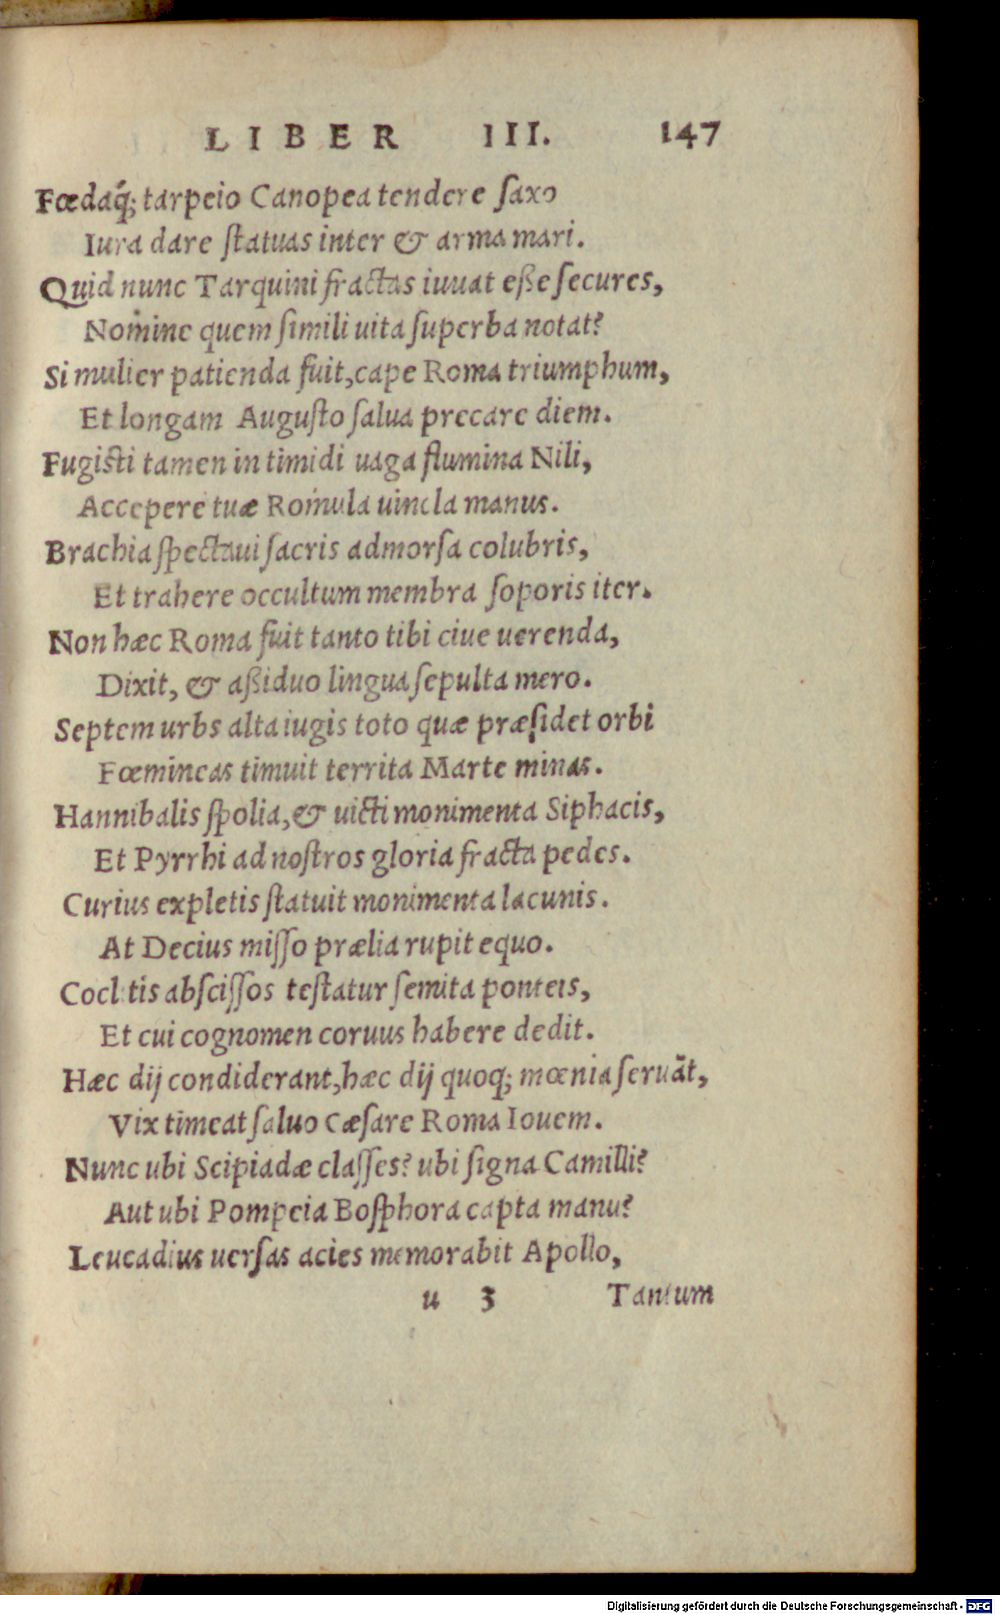 LIBER III. 147
Fœdaq́; tarpeio Canopea tendere ſaxo
Iura dare ſtatuas inter & arma mari.
Quid nunc Tarquini fractas iuuat eße ſecures,
Nomine quem ſimili uita ſuperba notat?
Si mulier patienda fuit, cape Roma triumphum,
Et longam Auguſto ſalua precare diem.
Fugisti tamen in timidi uaga flumina Nili,
Accepere tuæ Romula uincla manus.
Brachia ſpectaui ſacris admorſa colubris,
Et trahere occultum membra ſoporis iter.
Non hæc Roma fuit tanto tibi ciue uerenda,
Dixit, & aßiduo lingua ſepulta mero.
Septem urbs alta iugis toto quæ præſidet orbi
Fœmineas timuit territa Marte minas.
Hannibalis ſpolia, & uicti monimenta Siphacis,
Et Pyrrhi ad noſtros gloria fracta pedes.
Curius expletis ſtatuit monimenta lacunis.
At Decius miſſo prælia rupit equo.
Coclitis abſciſſos teſtatur ſemita ponteis,
Et cui cognomen coruus habere dedit.
Hæc dij condiderant, hæc dij quoq; mœnia ſeruāt,
Vix timeat ſaluo Cæſare Roma Iouem.
Nunc ubi Scipiadæ claſſes? ubi ſigna Camilli?
Aut ubi Pompeia Boſphora capta manu?
Leucadius uerſas acies memorabit Apollo,
u 3 Tantum
Digitalisierung gefördert durch die Deutsche Forschungsgemeinschaft - DFG